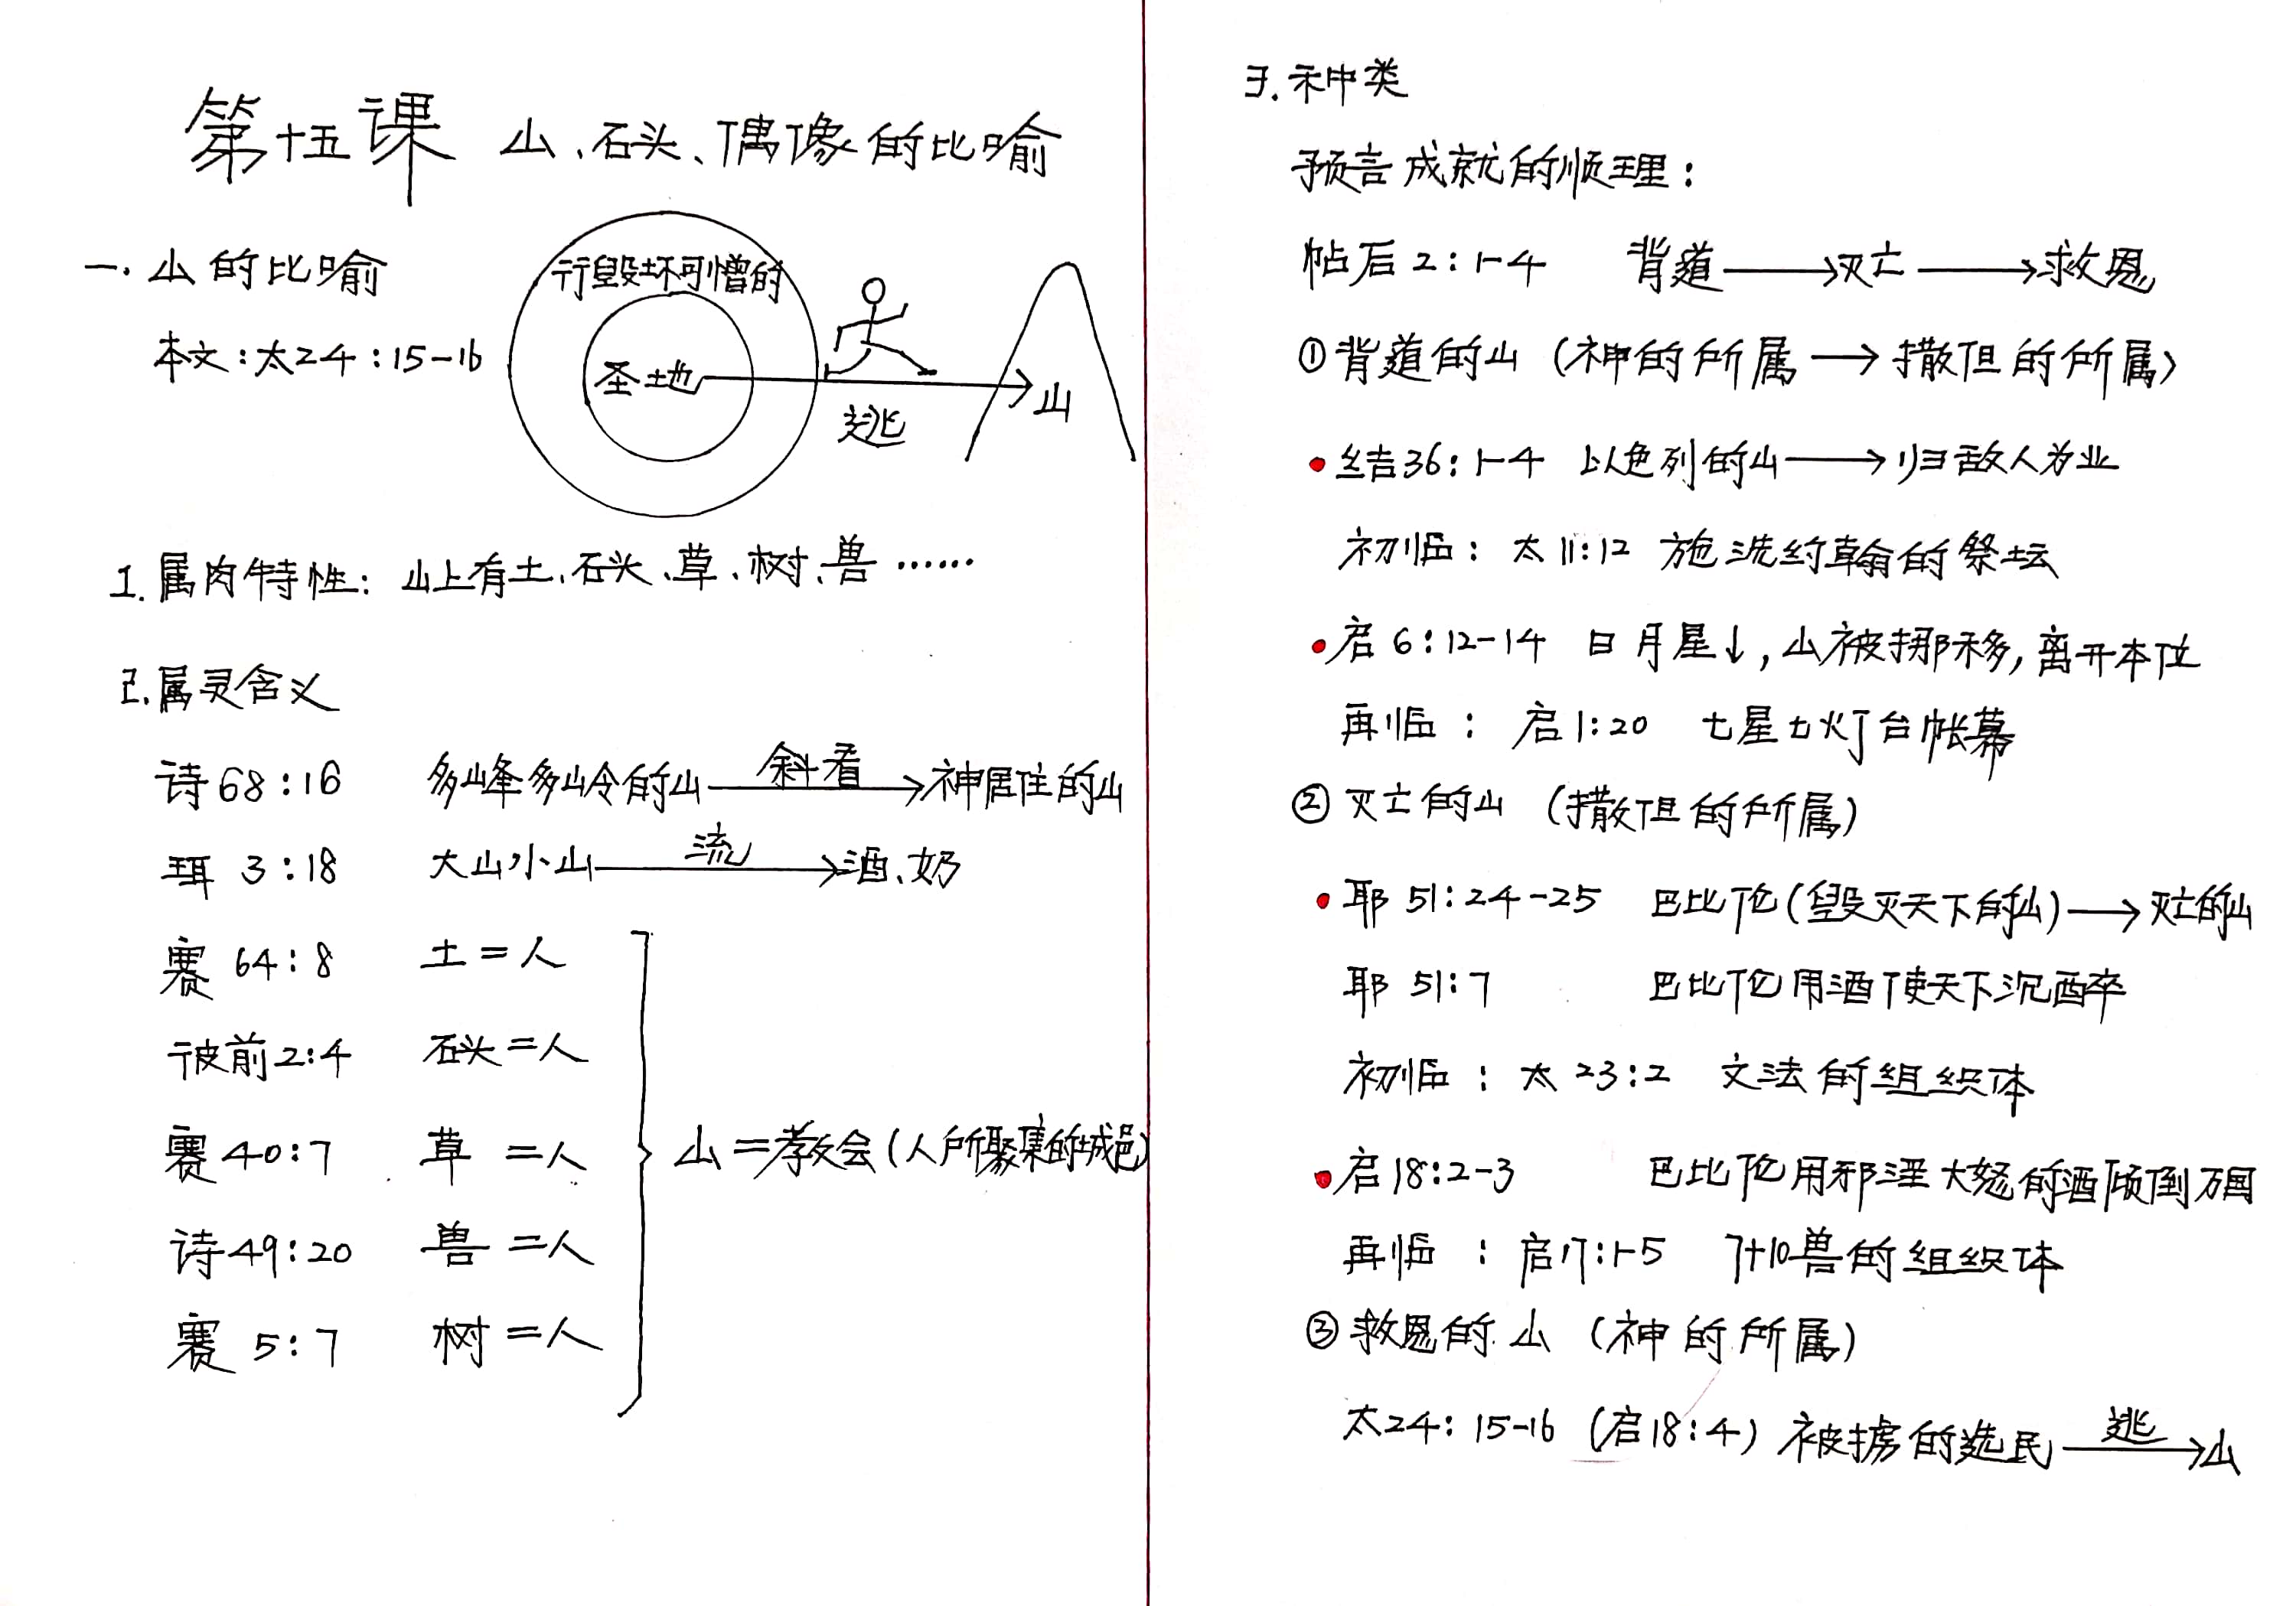 第十五课 山、石头、偶像的比喻
一. 山的比喻
本文:太24:15-16
行毁坏可憎的
圣地
逃
山
1. 属肉特性: 山上有土、石头、草、树、兽……
2. 属灵含义
诗68:16 多峰多岭的山 斜看→ 神居住的山
珥 3:18 大山小山 流→ 酒、奶
赛 64:8 土=人
彼前2:4 石头=人
赛40:7 草=人
诗49:20 兽=人
赛 5:7 树=人
山=教会(人所聚集的城邑)
3. 种类
预言成就的顺理:
帖后 2:1-4 背道→灭亡→救恩
①背道的山 (神的所属→撒但的所属)
•结36:1-4 以色列的山→归敌人为业
初临: 太11:12 施洗约翰的祭坛
•启 6:12-14 日月星↓,山被挪移,离开本位
再临: 启1:20 七星七灯台帐幕
②灭亡的山 (撒但的所属)
•耶 51:24-25 巴比伦(毁灭天下的山)→灭亡的山
耶 51:7 巴比伦用酒使天下沉醉
初临: 太 23:2 文法的组织体
•启18:2-3 巴比伦用邪淫大怒的酒倾倒万国
再临: 启17:1-5 7+10兽的组织体
③救恩的山 (神的所属)
太24:15-16 (启18:4) 被掳的选民 逃→山